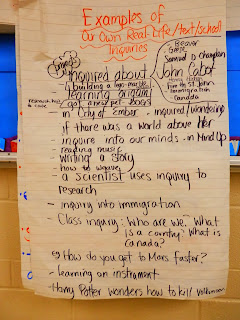 Examples of
Our Own Real-Life/text/school
Inquiries
Beaver
Samuel D Champlain
inquired about John Cabot
building a lego marble
learning origami
immigration
Canada
research has a cave
got a new pet - Board
- in City of Ember - inquired/wondering
if there was a world above Her
- inquire into our minds - in Mind Up
- reading music
- writing a story
- how to weave
- a scientist uses inquiry to
research
- inquiry into immigration
- Class inquiry: Who are we. What
is a country? What is
Canada?
How do you get to Mars faster?
- learning an instrument
- Harry Potter wonders how to kill Voldemort